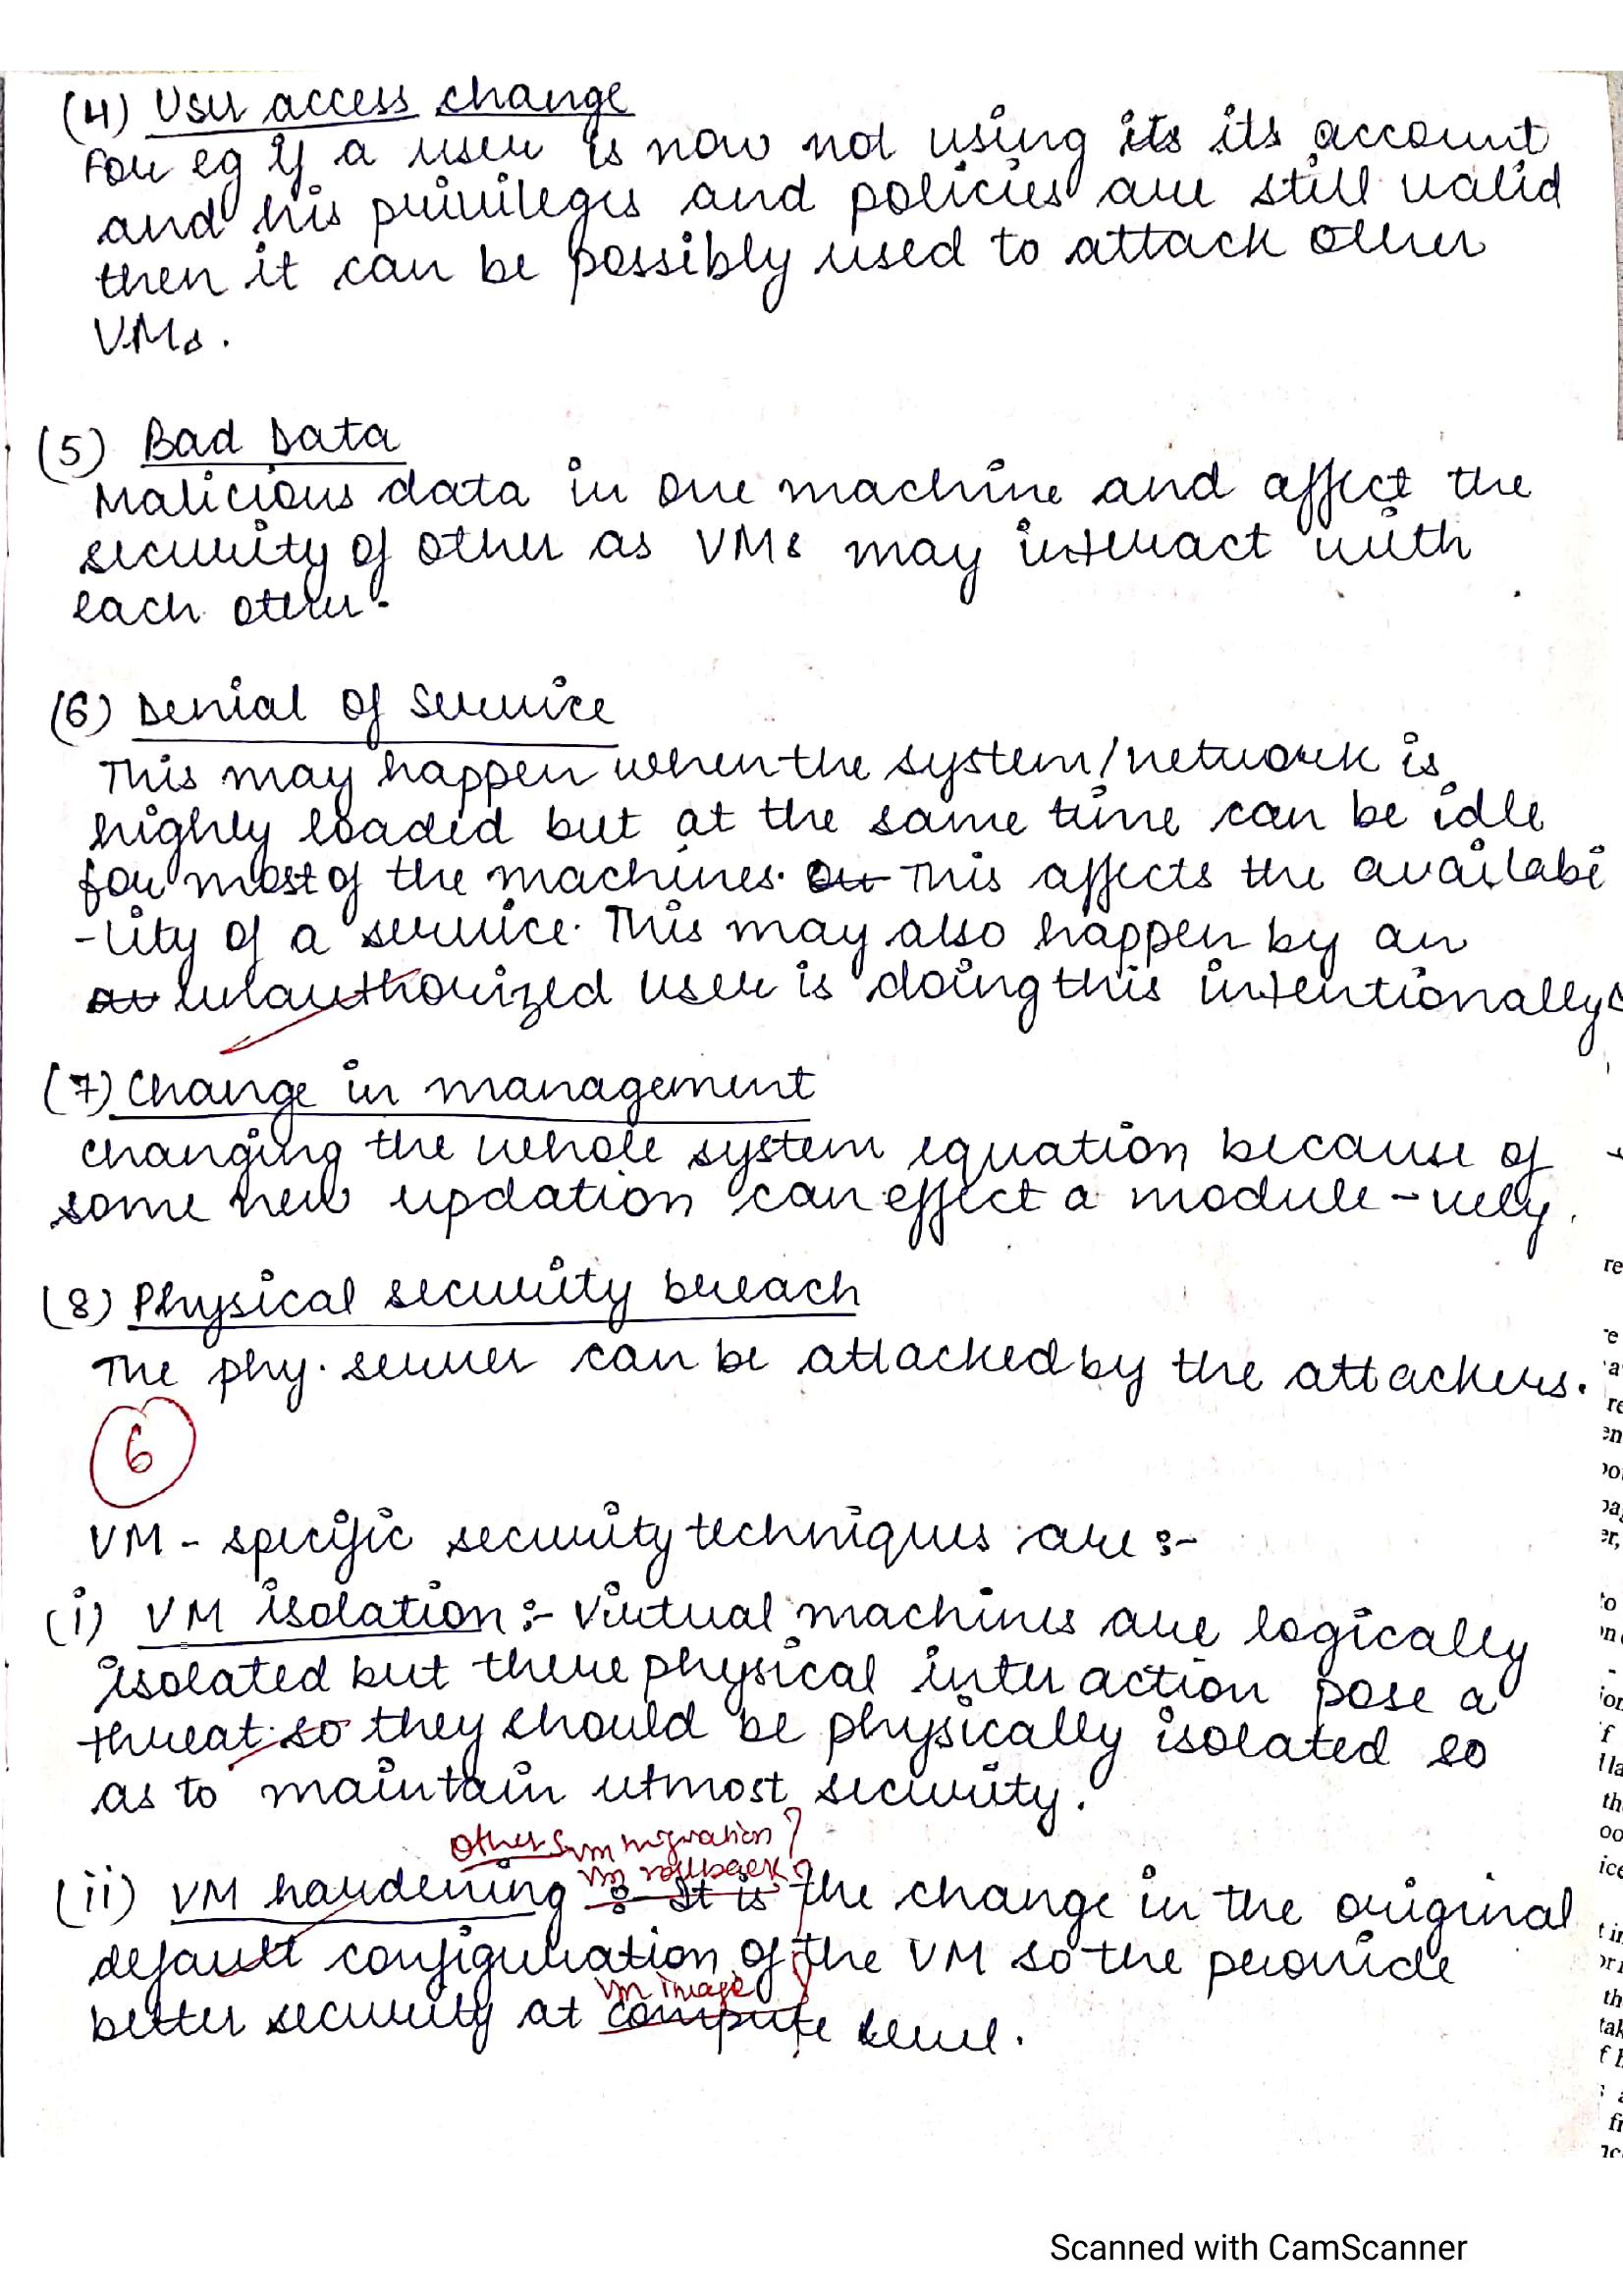 (4) User access change
For eg if a user is now not using its its account
and his privileges and policies are still valid
then it can be possibly used to attack other
VMs.
(5) Bad Data
Malicious data in one machine and affect the
security of other as VMs may interact with
each other.
(6) Denial of Service
This may happen when the system/network is
highly loaded but at the same time can be idle
for most of the machines. This affects the availabi
-lity of a service. This may also happen by an
unauthorized user is doing this intentionally
(7) Change in management
changing the whole system equation because of
some new updation can effect a module-vely.
(8) Physical security breach
The phy. server can be attacked by the attackers.
6
VM - specific security techniques are :-
(i) VM isolation :- Virtual machines are logically
isolated but there physical inter action pose a
threat. so they should be physically isolated so
as to maintain utmost security.
Others vm migration?
vm rollback?
(ii) VM hardening :- It is the change in the original
default configuration of the VM so the peronide
vm image
better security at compute level.
re
re
en
er,
to
f
th
ice
th
Scanned with CamScanner